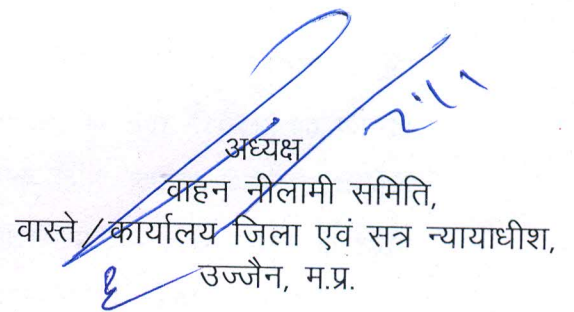 अध्यक्ष
वाहन नीलामी समिति,
वास्ते/कार्यालय जिला एवं सत्र न्यायाधीश,
उज्जैन, म.प्र.